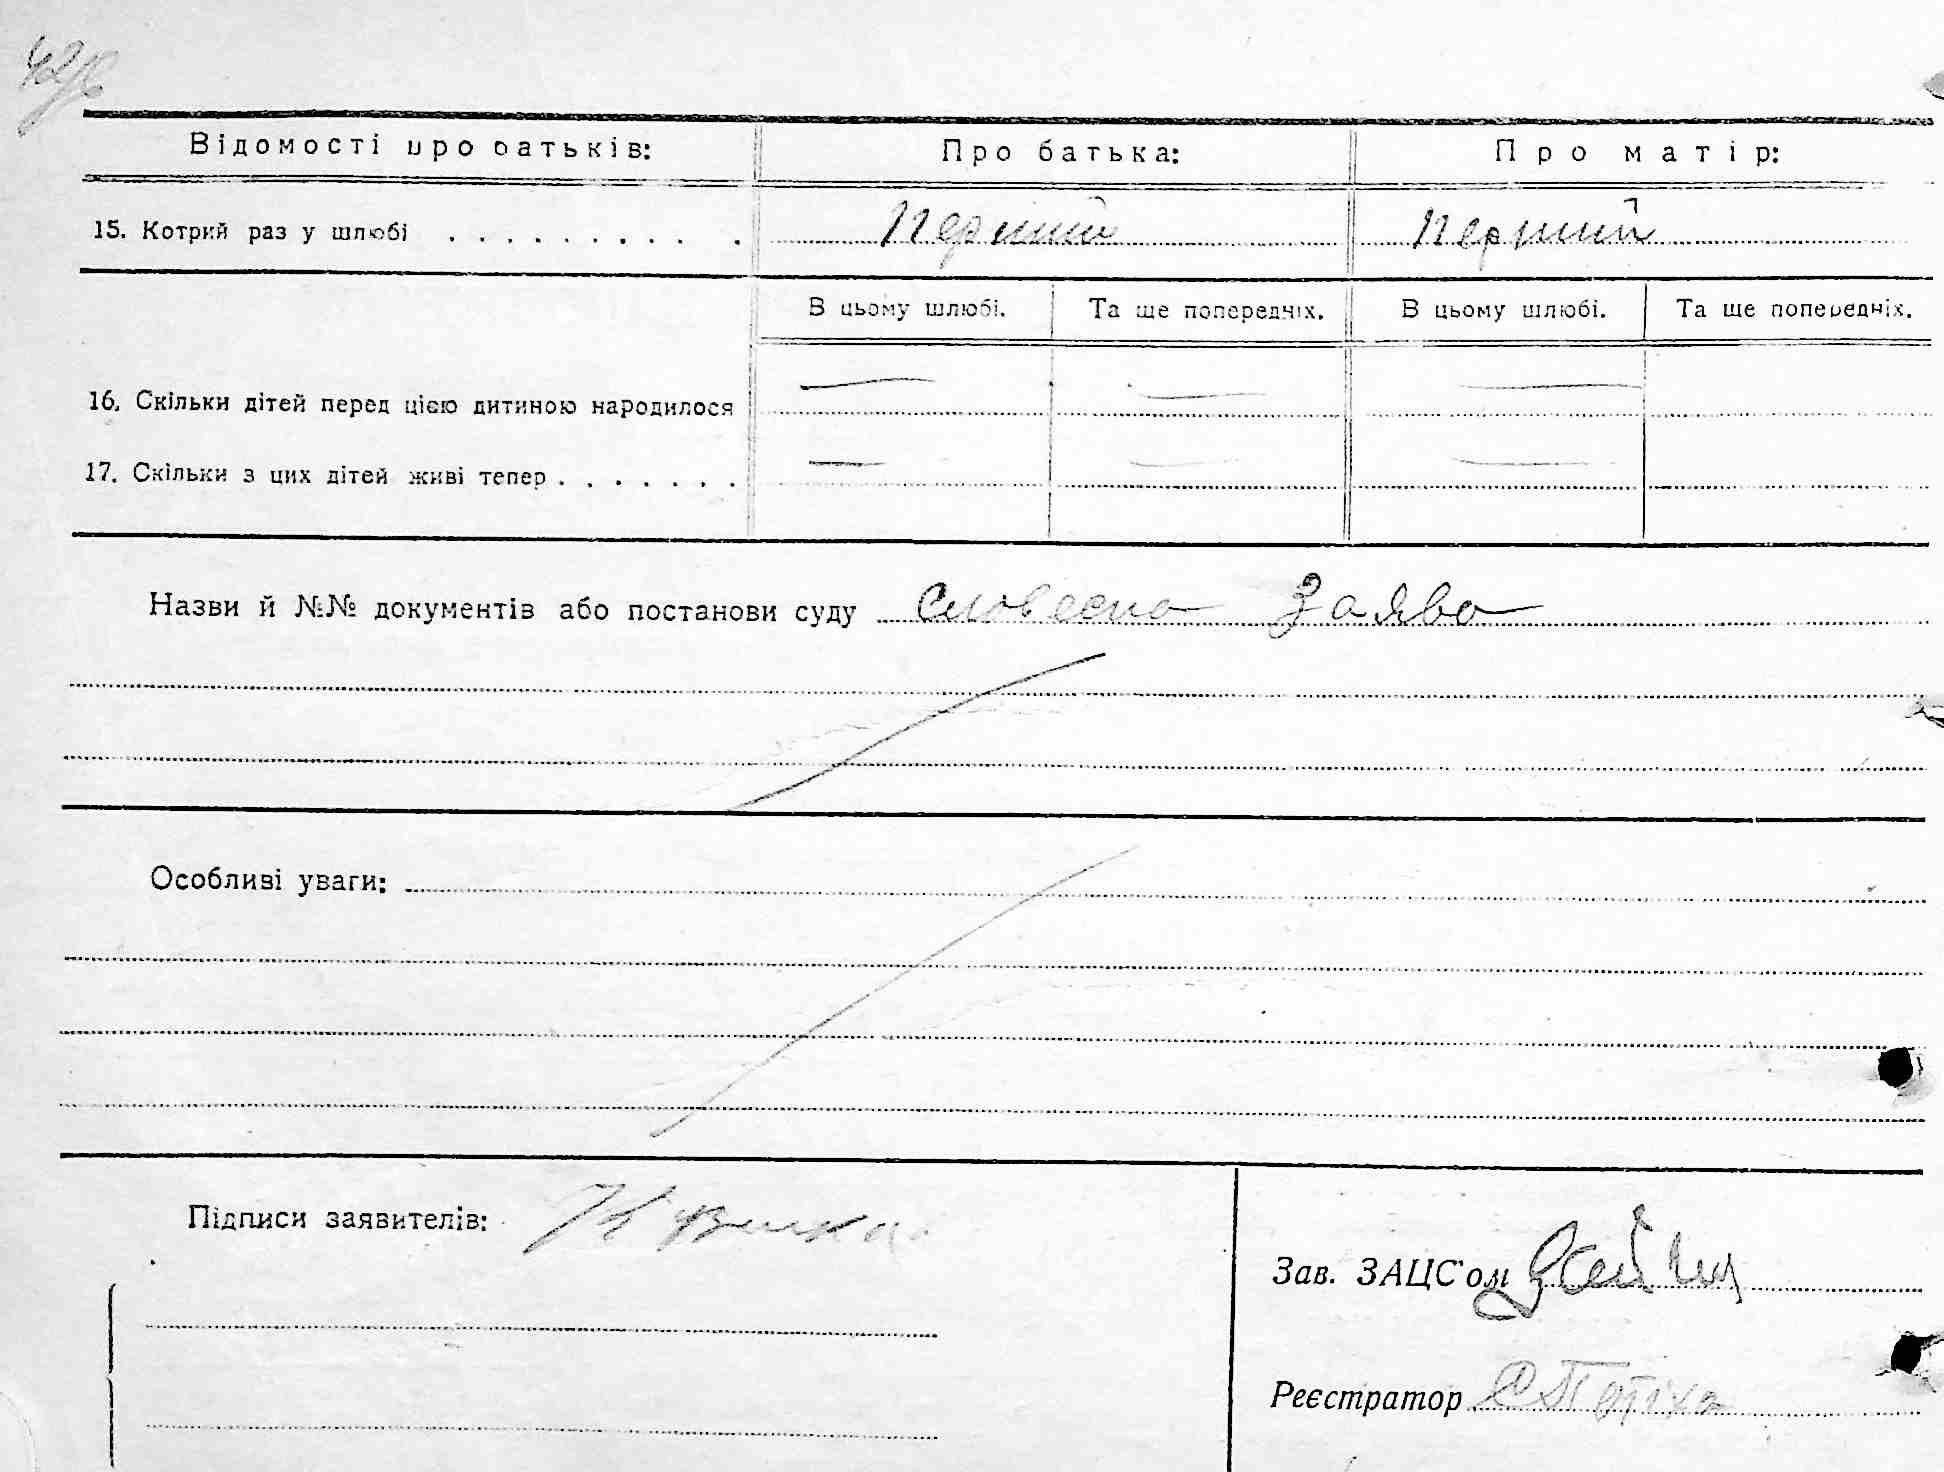 Відомості про батьків: Про батька: Про матір:
15. Котрий раз у шлюбі . . . . . . . . . . Перший Перший
В цьому шлюбі. Та ще попередніх. В цьому шлюбі. Та ще попередніх.
16. Скільки дітей перед цією дитиною народилося — — —
17. Скільки з цих дітей живі тепер . . . . . . . — — —
Назви й №№ документів або постанови суду словесна заява
Особливі уваги:
Підписи заявителів:
Зав. ЗАЦС'ом
Реєстратор